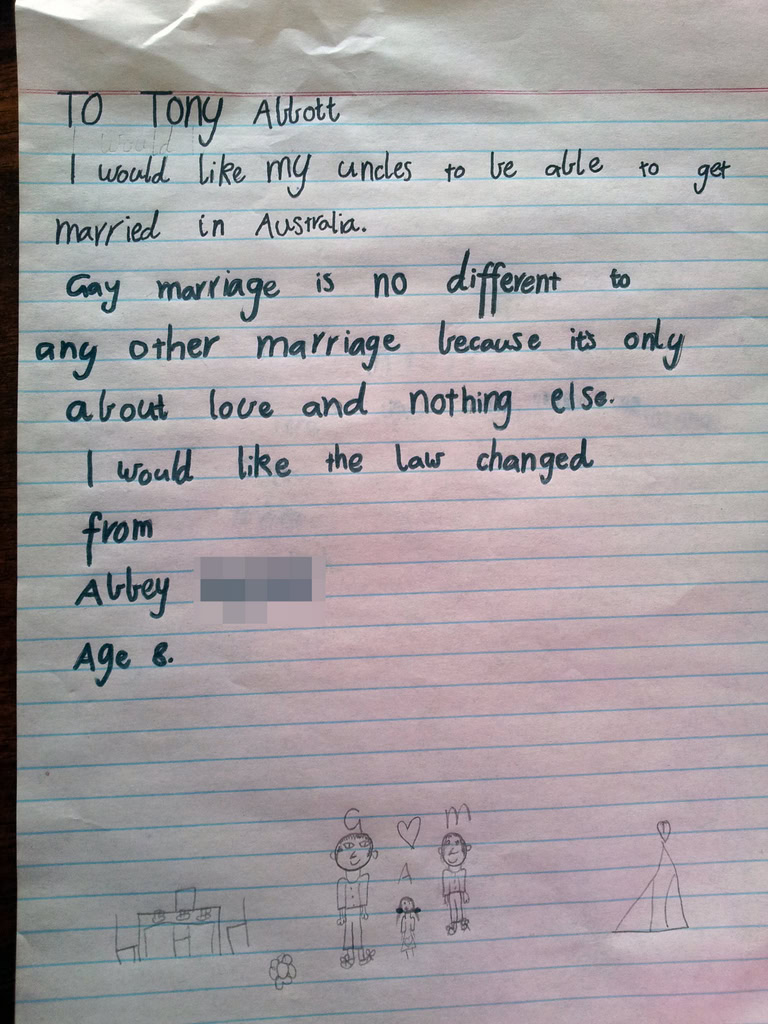 TO Tony Abbott
I would
I would like my uncles to be able to get
married in Australia.
Gay marriage is no different to
any other marriage because it's only
about love and nothing else.
I would like the law changed
from
Abbey
Age 8.
G M
A